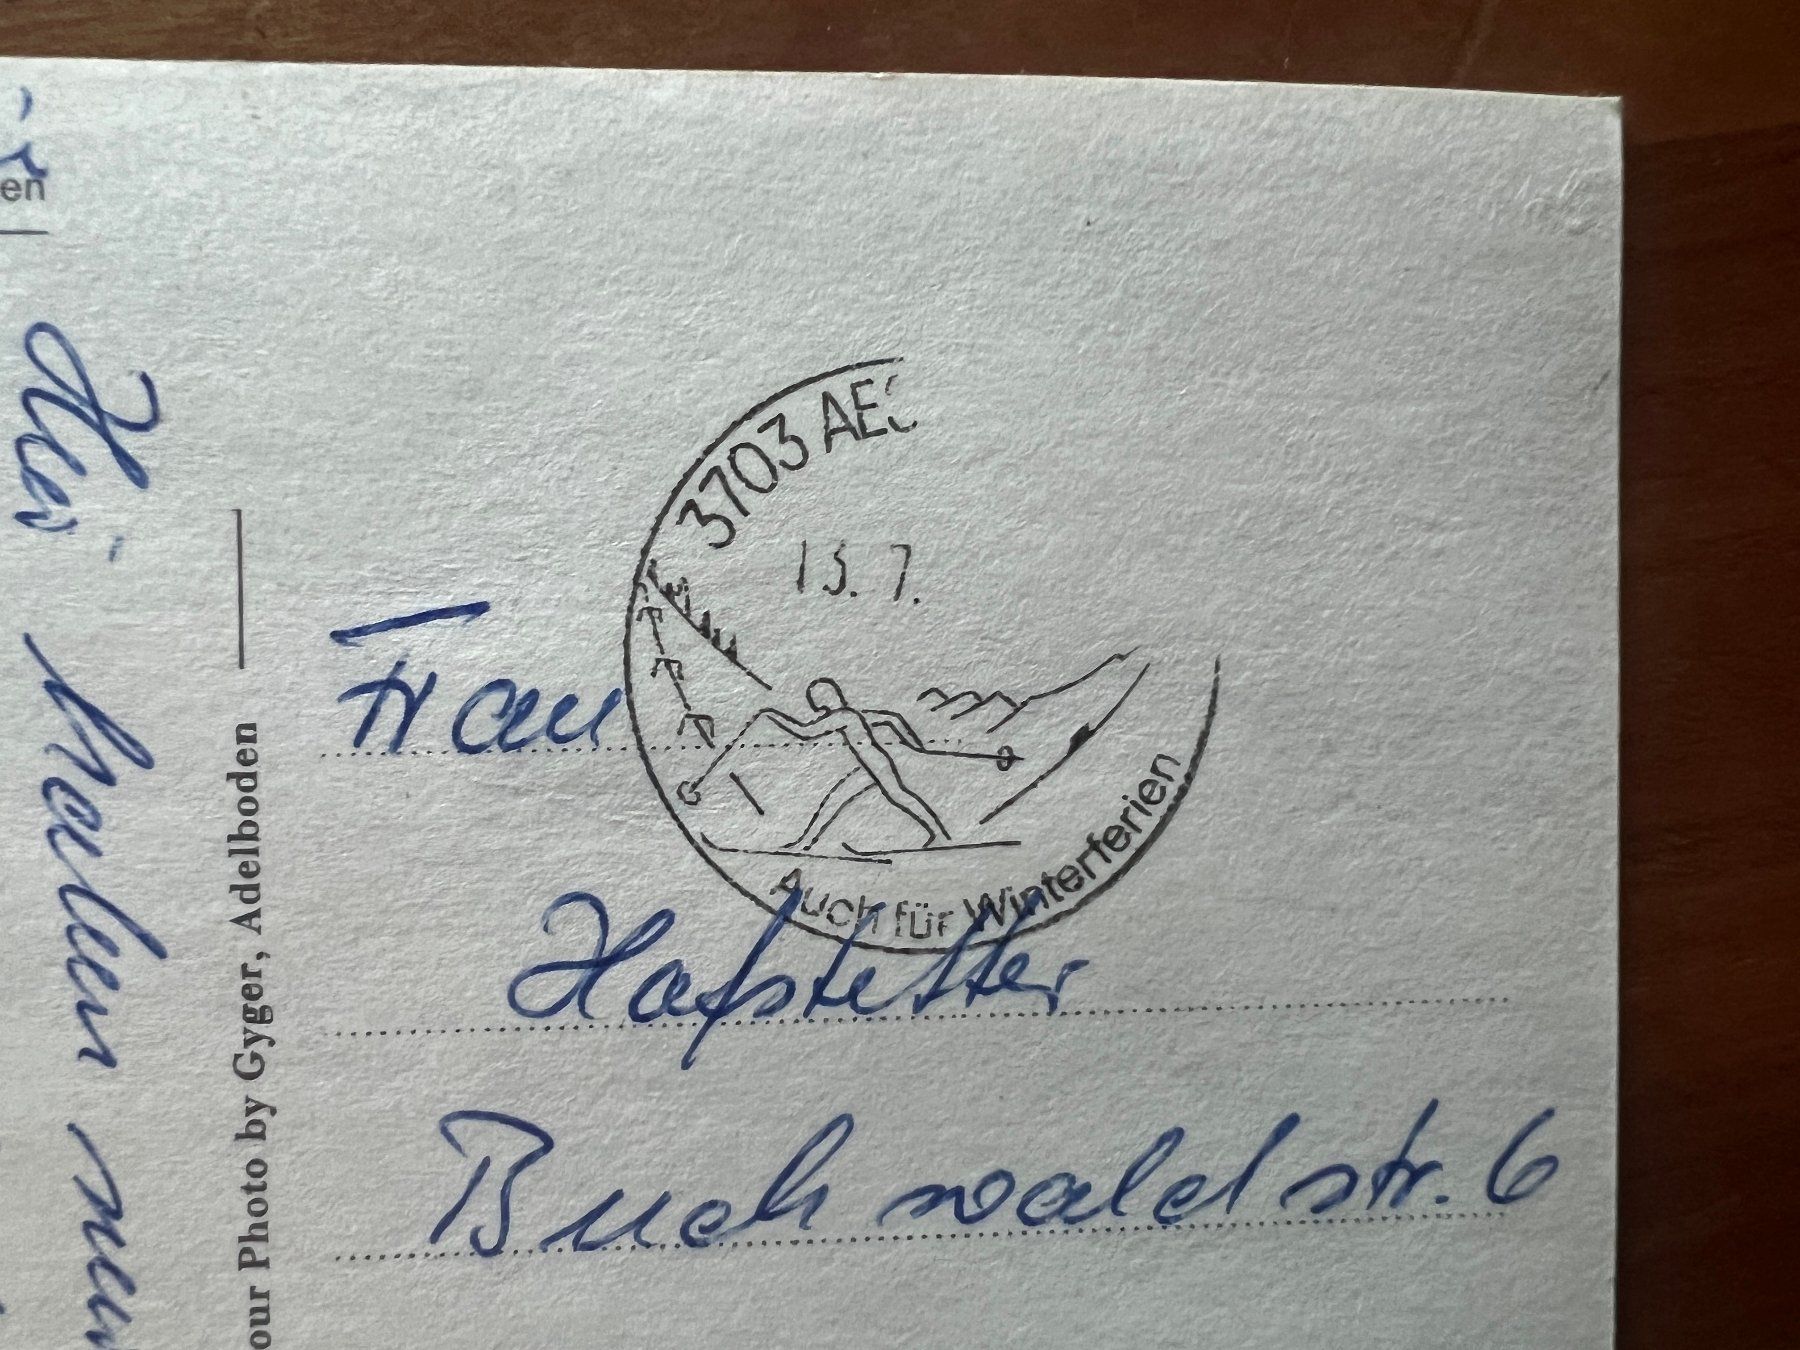 en
our Photo by Gyger, Adelboden
3703 AE
13. 7.
Auch für Winterferien
Frau
Hofstetter
Buchwaldstr. 6
haben